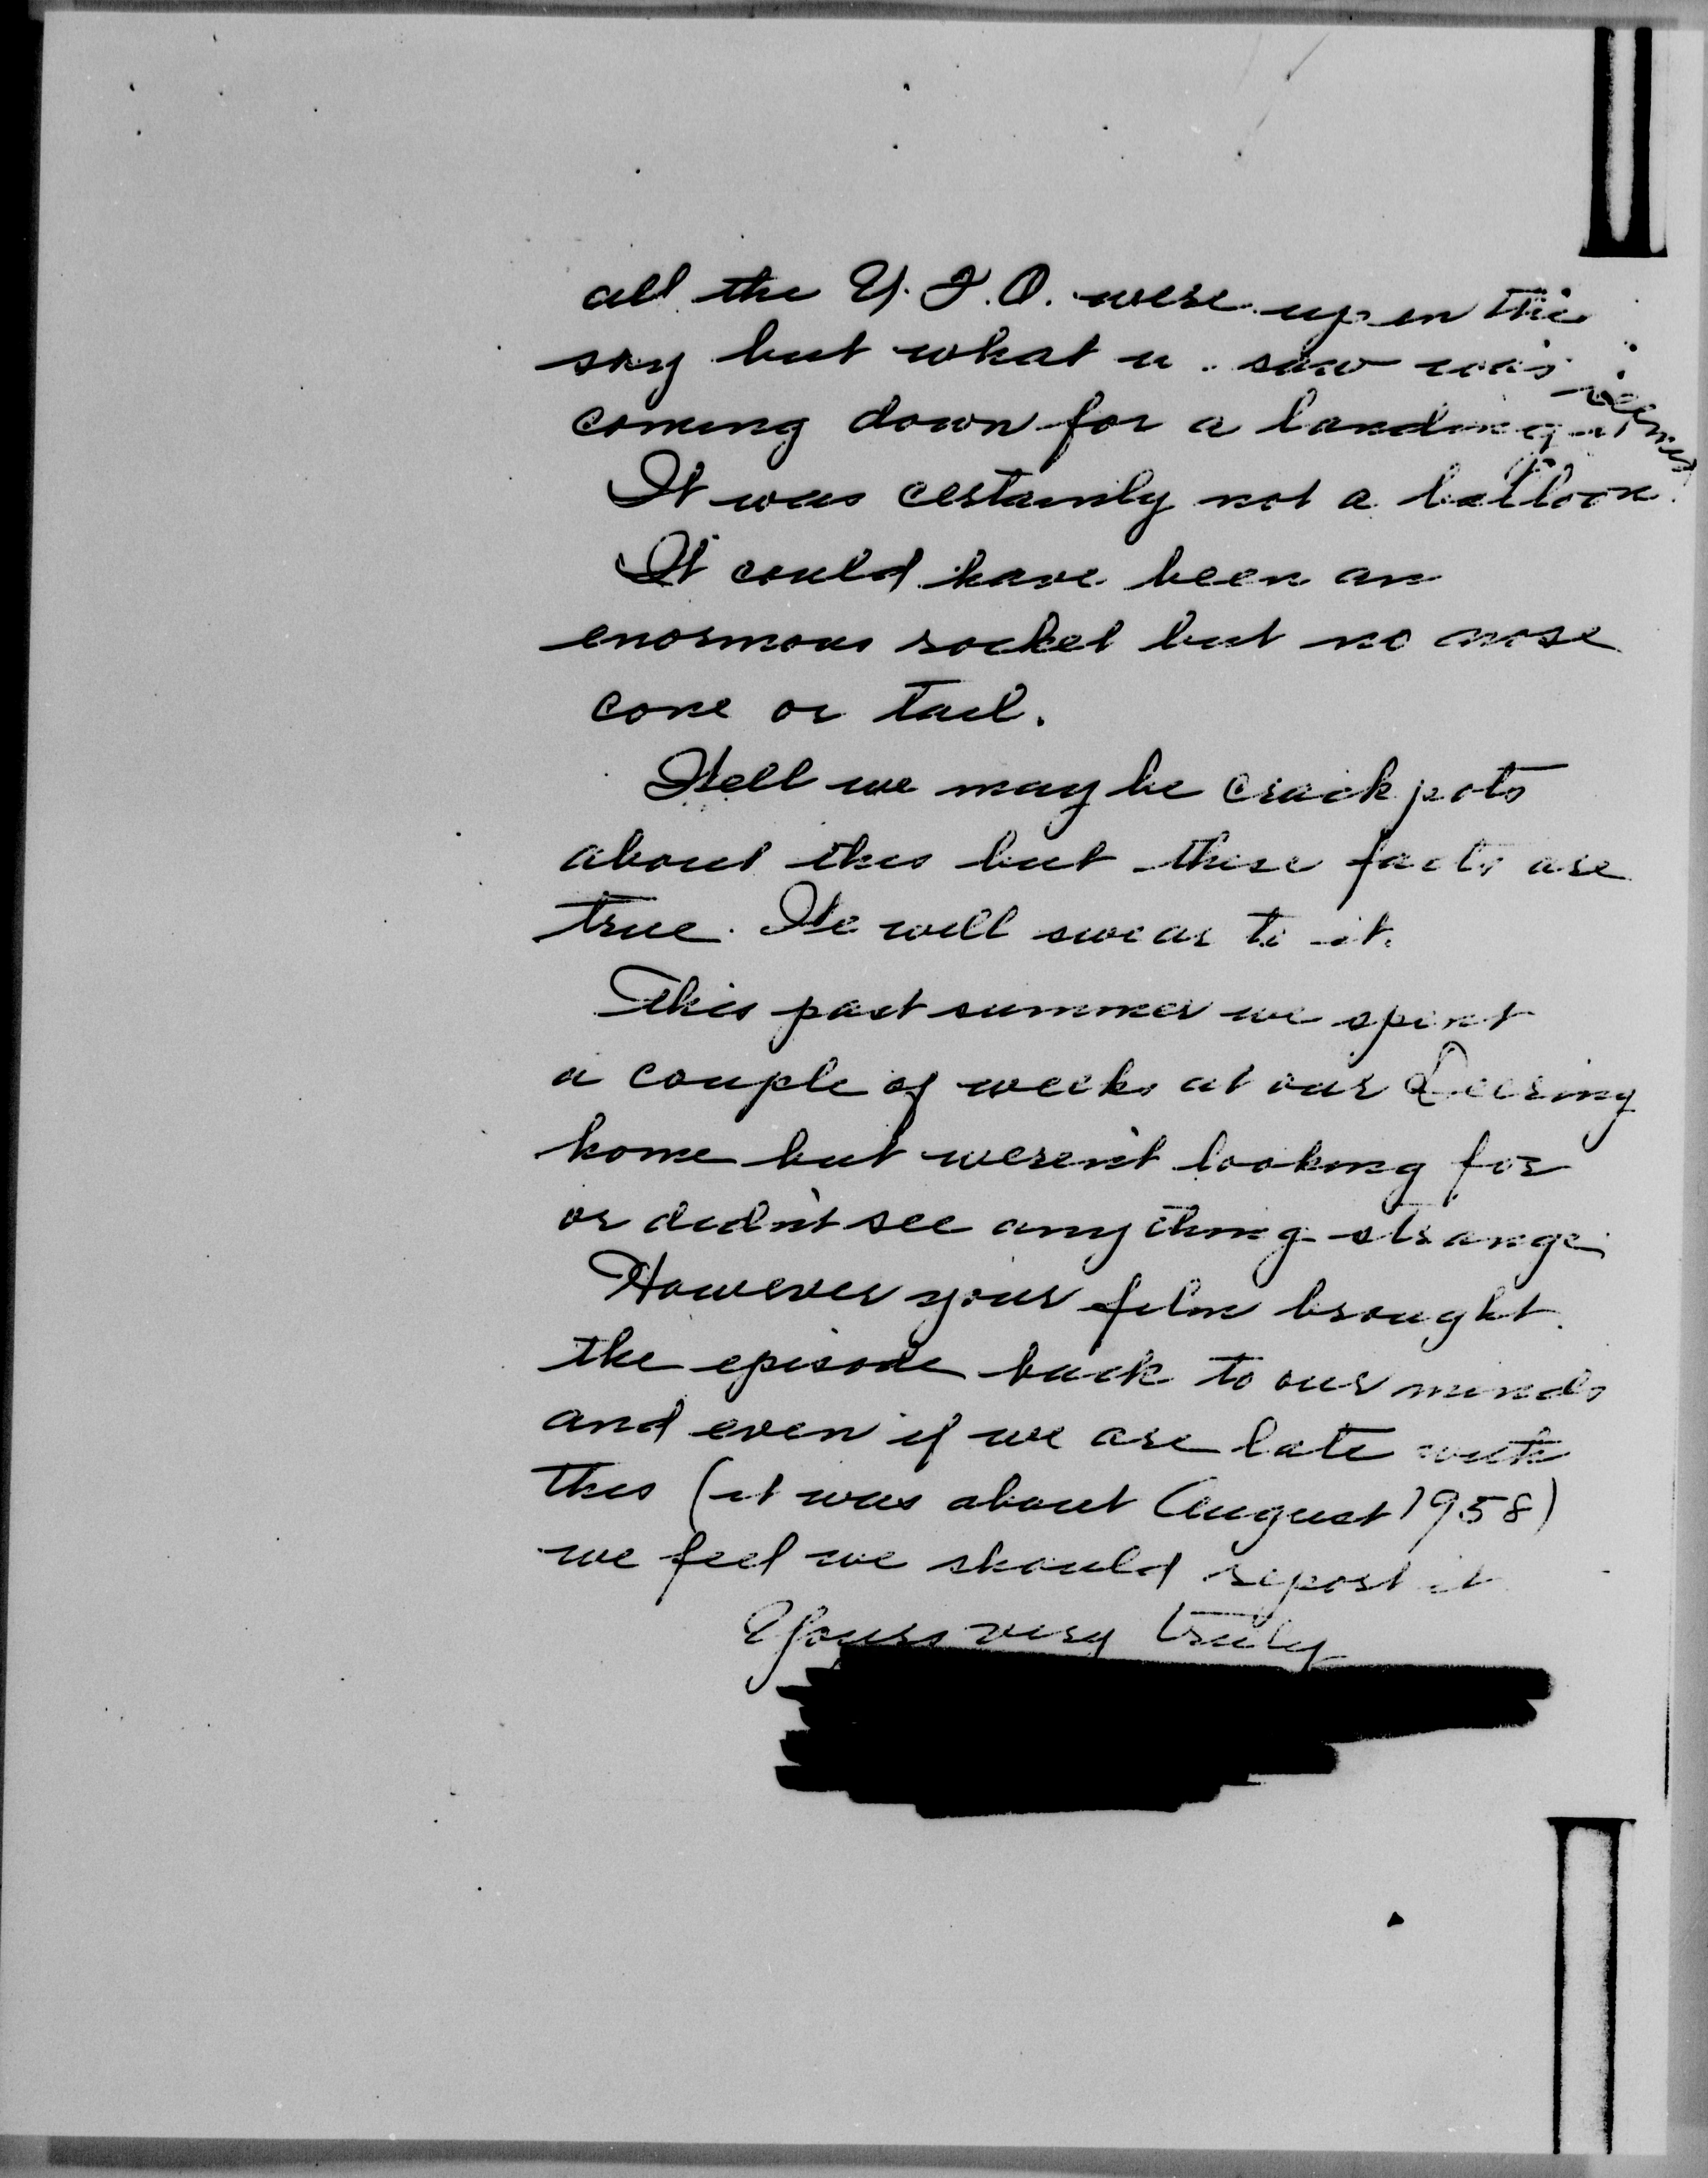 all the U.F.O. were up in the
sky but what we saw was
coming down for a landing it seemed
It was certainly not a balloon.
It could have been an
enormous rocket but no nose
cone or tail.
Well we may be crackpots
about this but these facts are
true. We will swear to it.
This past summer we spent
a couple of weeks at our Deering
home but weren't looking for
or didn't see anything strange.
However your film brought
the episode back to our minds
and even if we are late with
this (it was about August 1958)
we feel we should report it
Yours very truly